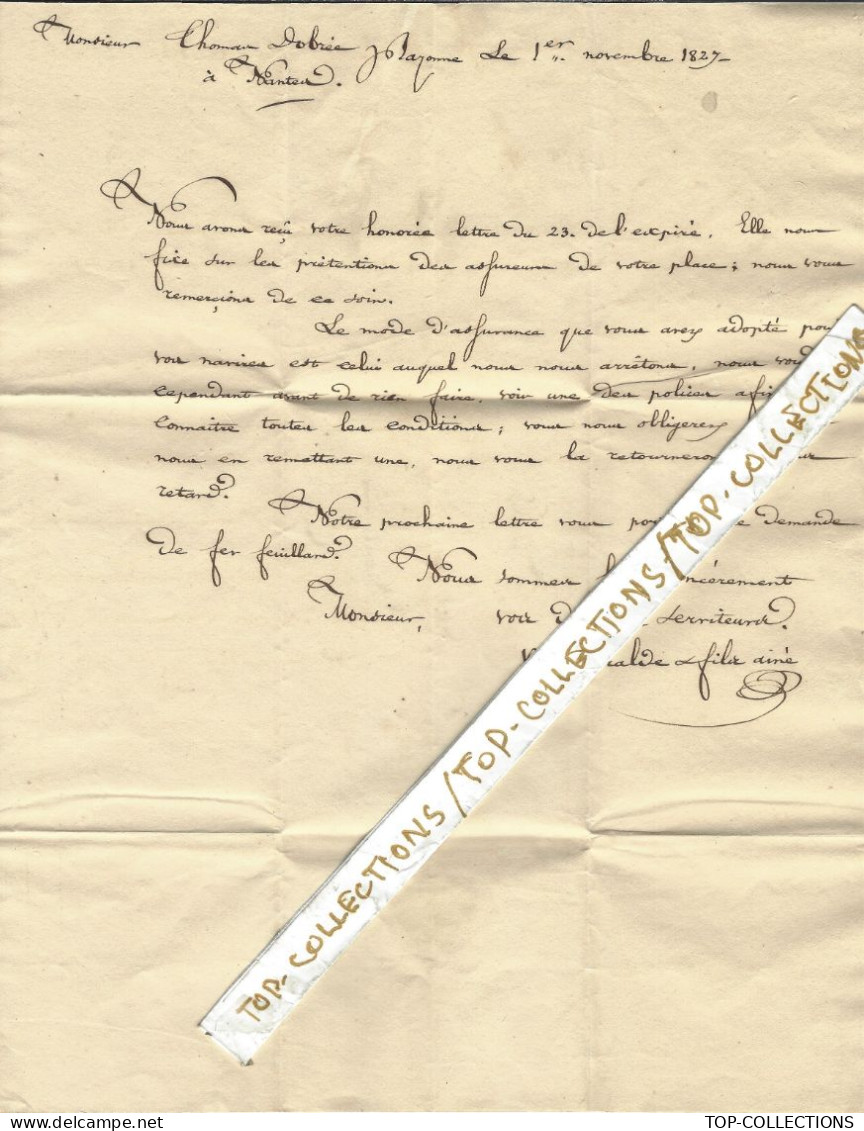 Monsieur Thomas Dobrée Bayonne Le 1er novembre 1827
à Nantes.
Nous avons reçu votre honorée lettre du 23. de l'expiré. Elle nous
fixe sur les prétentions des assureurs de votre place ; nous vous
remerçions de ce soin.
Le mode d'assurance que vous avez adopté pour
vos navires est celui auquel nous nous arrêtons, nous
cependant avant de rien faire, voir une des polices
Connaitre toutes les conditions ; vous nous obligerez
nous en remettant une, nous vous la
retard.
Notre prochaine lettre vous demande
de fer feuillard.
Nous sommes
Monsieur, vos Serviteurs.
& fils ainé
TOP-COLLECTIONS/TOP-COLLECTIONS/TOP-COLLECTIONS
TOP-COLLECTIONS